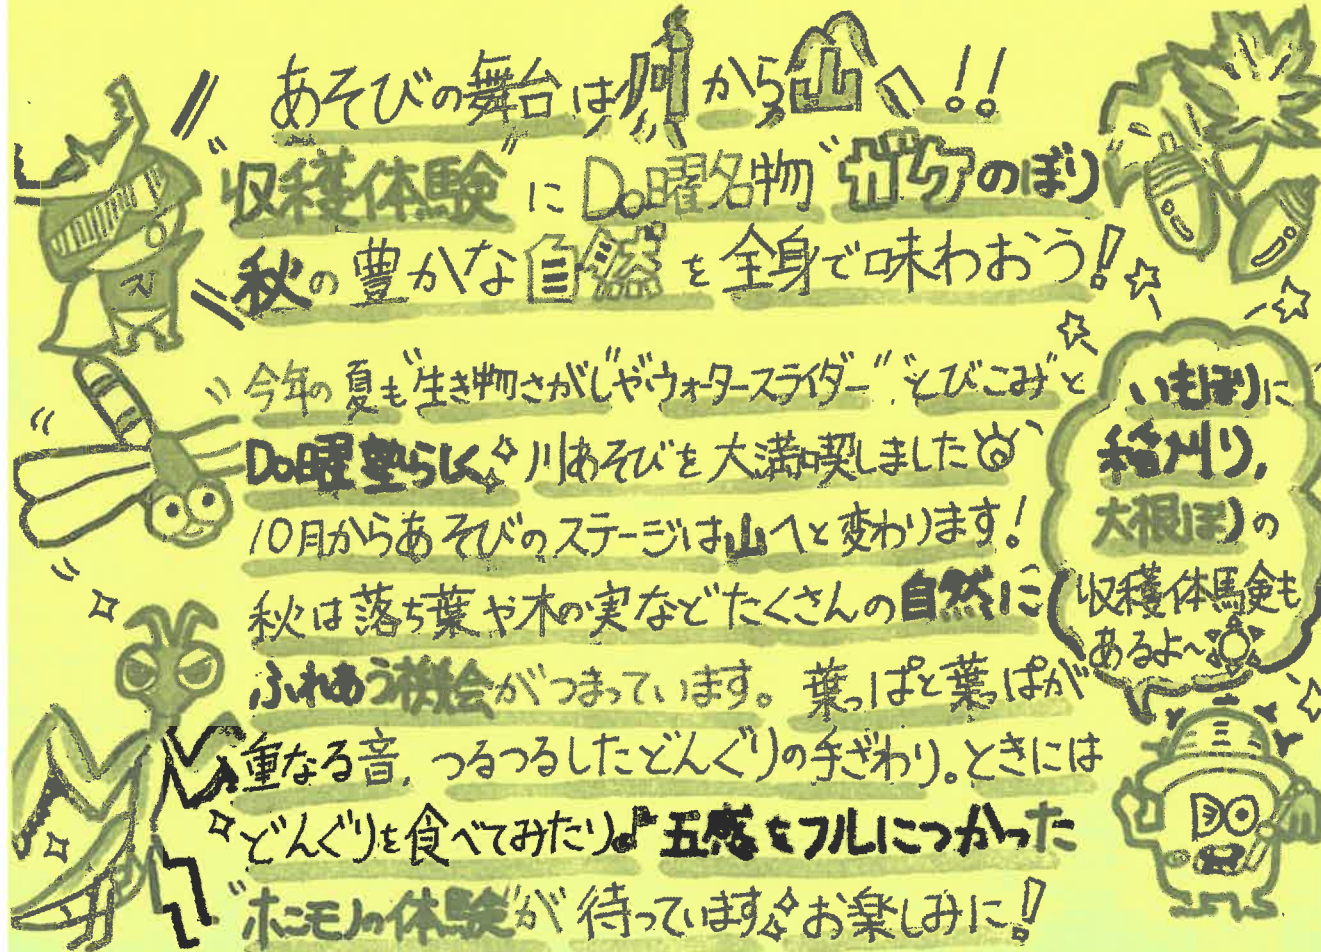 あそびの舞台は川から山へ!!
"収穫体験"にDo曜名物"ガケのぼり"
秋の豊かな自然を全身で味わおう!
今年の夏も"生き物さがし"や"ウォータースライダー""とびこみ"と
Do曜塾らしく川あそびを大満喫しました
10月からあそびのステージは山へと変わります!
秋は落ち葉や木の実などたくさんの自然に
ふれあう機会がつまっています。葉っぱと葉っぱが
重なる音、つるつるしたどんぐりの手ざわり。ときには
どんぐりを食べてみたり♪五感をフルにつかった
"ホンモノの体験"が待っています お楽しみに!
いもほりに
稲刈り、
大根ほりの
収穫体験も
あるよ~
Do